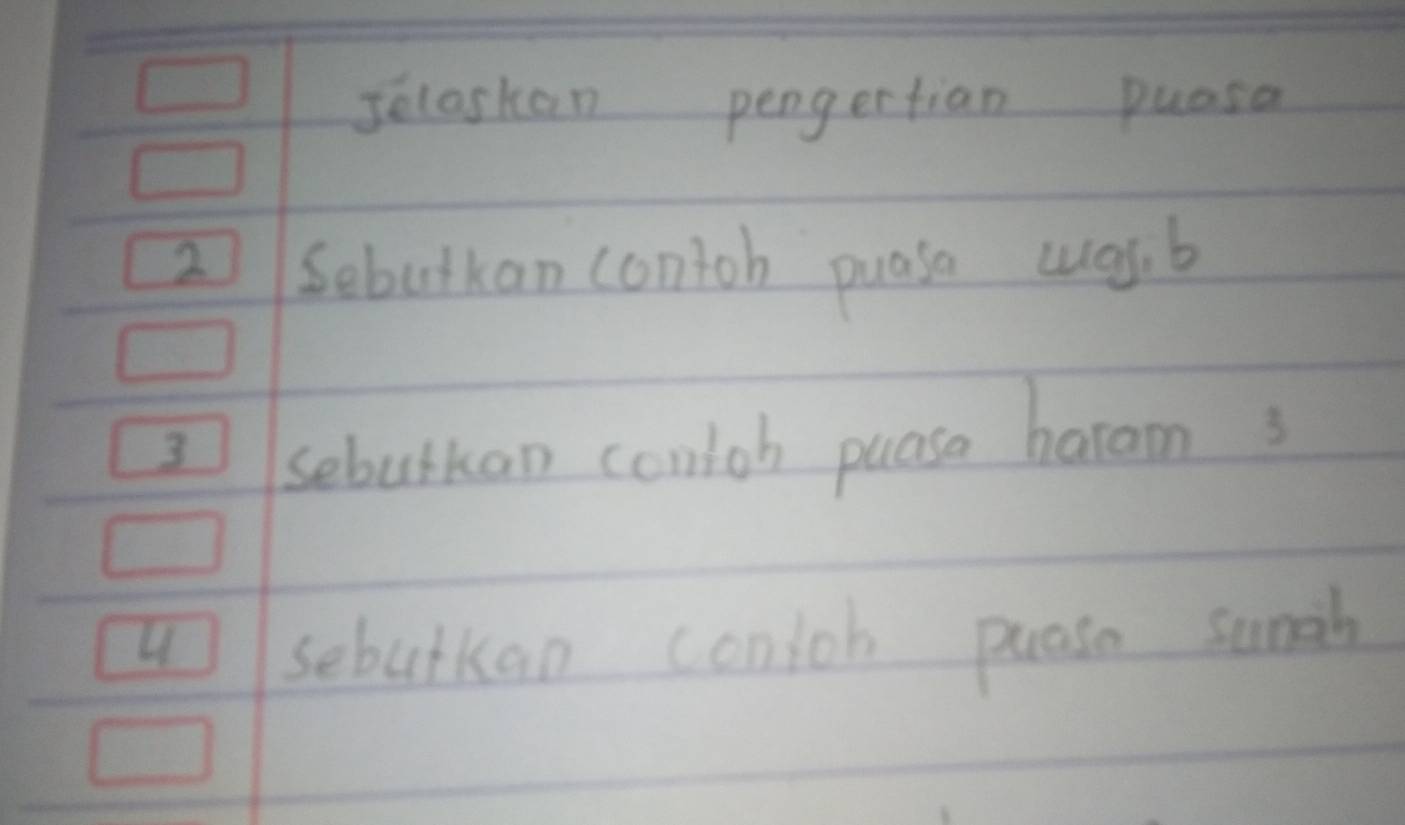 Jelaskan pengertian puasa
2 Sebutkan contoh puasa wajib
3 sebutkan contoh puasa haram 3
4 sebutkan contoh puasa sunah